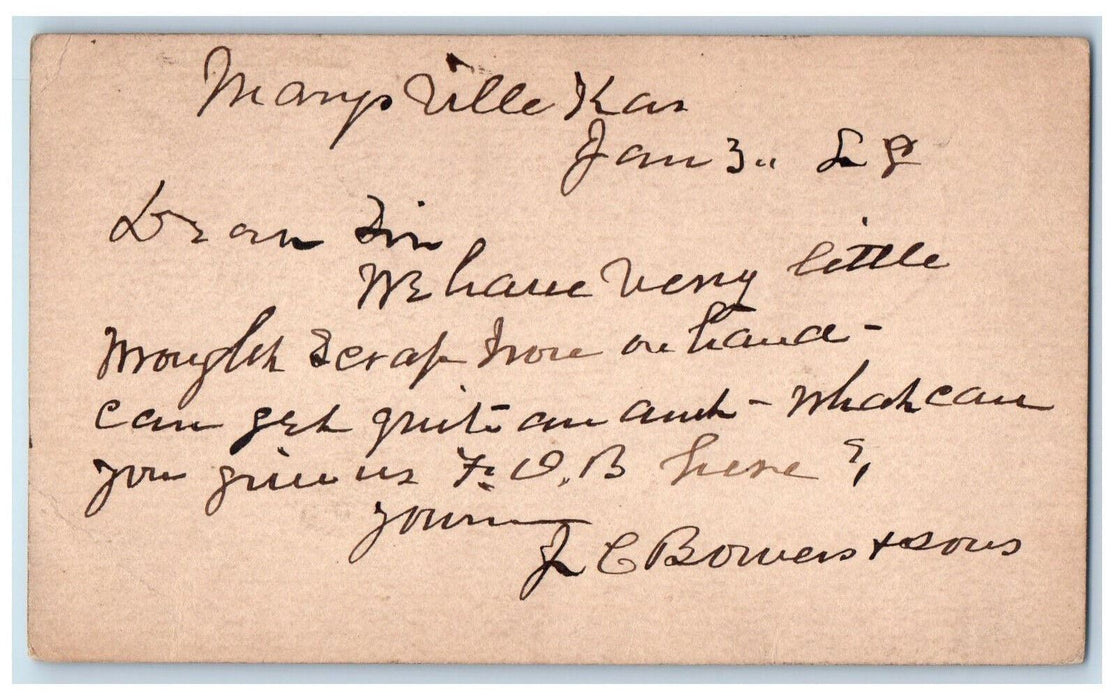 Marysville Kas
Jan 3"
Dear Sir
We have Very little
Wrought Scrap Iron on hand -
can get quite an amt - What can
you give us F.O.B here ?
yours
J C Bowers & Sons